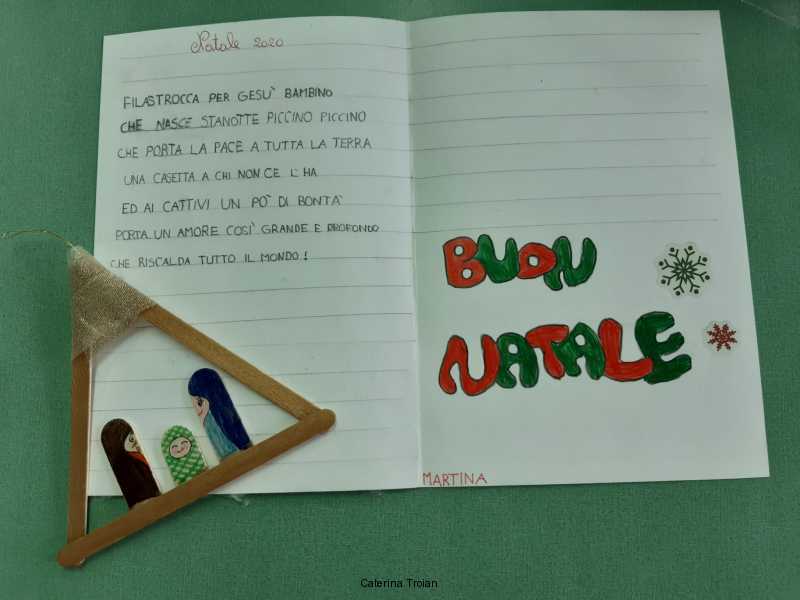 Natale 2020
FILASTROCCA PER GESU' BAMBINO
CHE NASCE STANOTTE PICCINO PICCINO
CHE PORTA LA PACE A TUTTA LA TERRA
UNA CASETTA A CHI NON CE L'HA
ED AI CATTIVI UN PO' DI BONTA'
PORTA UN AMORE COSI' GRANDE E PROFONDO
CHE RISCALDA TUTTO IL MONDO!
BUON
NATALE
MARTINA
Caterina Troian